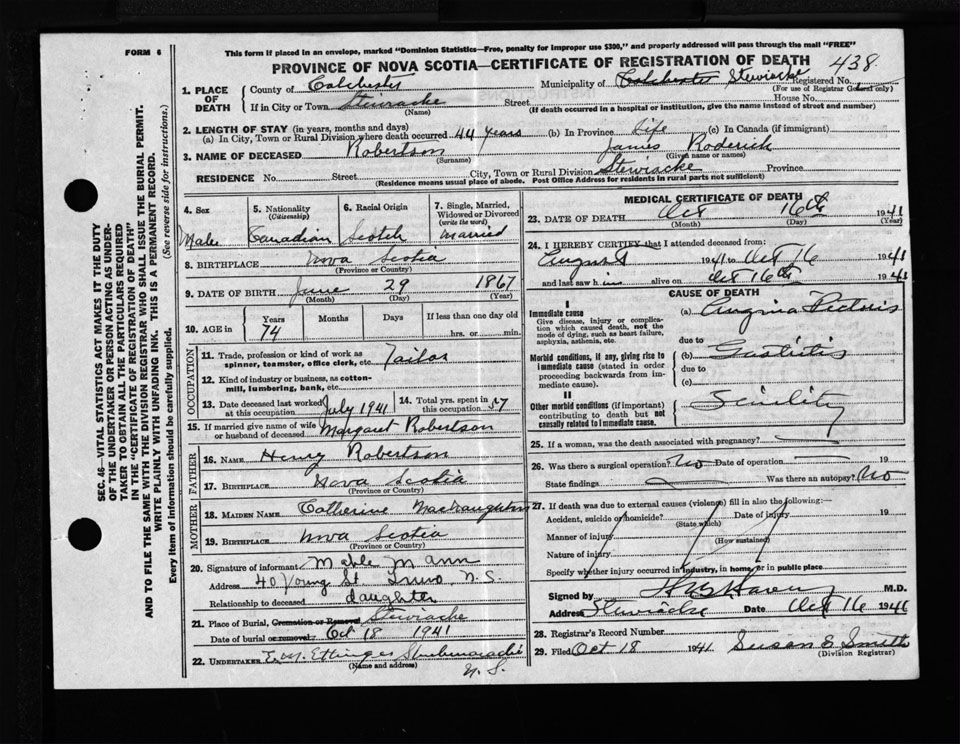 FORM 6
This form if placed in an envelope, marked "Dominion Statistics—Free, penalty for improper use $300," and properly addressed will pass through the mail "FREE"
PROVINCE OF NOVA SCOTIA—CERTIFICATE OF REGISTRATION OF DEATH 438
SEC. 46—VITAL STATISTICS ACT MAKES IT THE DUTY
OF THE UNDERTAKER OR PERSON ACTING AS UNDER-
TAKER TO OBTAIN ALL THE PARTICULARS REQUIRED
IN THE "CERTIFICATE OF REGISTRATION OF DEATH"
AND TO FILE THE SAME WITH THE DIVISION REGISTRAR WHO SHALL ISSUE THE BURIAL PERMIT.
WRITE PLAINLY WITH UNFADING INK. THIS IS A PERMANENT RECORD.
Every item of information should be carefully supplied. (See reverse side for instructions.)
1. PLACE OF DEATH
County of Colchester Municipality of Colchester Stewiacke Registered No.
(For use of Registrar General only)
If in City or Town Stewiacke Street House No.
(Name) (If death occurred in a hospital or institution, give the name instead of street and number)
2. LENGTH OF STAY (in years, months and days)
(a) In City, Town or Rural Division where death occurred 44 years (b) In Province Life (c) In Canada (if immigrant)
3. NAME OF DECEASED Robertson James Roderick
(Surname) (Given name or names)
RESIDENCE No. Street City, Town or Rural Division Stewiacke Province
(Residence means usual place of abode. Post Office Address for residents in rural parts not sufficient)
4. Sex Male
5. Nationality (Citizenship) Canadian
6. Racial Origin Scotch
7. Single, Married, Widowed or Divorced (write the word) Married
8. BIRTHPLACE Nova Scotia
(Province or Country)
9. DATE OF BIRTH June 29 1867
(Month) (Day) (Year)
10. AGE in Years Months Days If less than one day old
74 hrs. or min.
OCCUPATION
11. Trade, profession or kind of work as spinner, teamster, office clerk, etc. Tailor
12. Kind of industry or business, as cotton-mill, lumbering, bank, etc.
13. Date deceased last worked at this occupation July 1941
14. Total yrs. spent in this occupation 57
15. If married give name of wife or husband of deceased Margaret Robertson
FATHER
16. NAME Henry Robertson
17. BIRTHPLACE Nova Scotia
(Province or Country)
MOTHER
18. MAIDEN NAME Catherine MacNaughton
19. BIRTHPLACE Nova Scotia
(Province or Country)
20. Signature of informant Mable Mann
Address 40 Young St Truro, N.S.
Relationship to deceased daughter
21. Place of Burial, Cremation or Removal Stewiacke
Date of burial or removal Oct 18 1941
22. UNDERTAKER E. M. Ettinger Shubenacadie
(Name and address) N.S.
MEDICAL CERTIFICATE OF DEATH
23. DATE OF DEATH Oct 16th 1941
(Month) (Day) (Year)
24. I HEREBY CERTIFY that I attended deceased from:
August 1941 to Oct 16 1941
and last saw him alive on Oct 16th 1941
CAUSE OF DEATH
I
Immediate cause
Give disease, injury or complication which caused death, not the mode of dying, such as heart failure, asphyxia, asthenia, etc.
(a) Angina Pectoris
due to
Morbid conditions, if any, giving rise to immediate cause (stated in order proceeding backwards from immediate cause).
(b) Gastritis
due to
(c)
II
Other morbid conditions (if important) contributing to death but not causally related to immediate cause.
Scinility
25. If a woman, was the death associated with pregnancy?
26. Was there a surgical operation? No Date of operation 19
State findings Was there an autopsy? No
27. If death was due to external causes (violence) fill in also the following:—
Accident, suicide or homicide? Date of injury 19
(State which)
Manner of injury
(How sustained)
Nature of injury
Specify whether injury occurred in industry, in home, or in public place
Signed by M.D.
Address Stewiacke Date Oct 16 1946
28. Registrar's Record Number
29. Filed Oct 18 1941 Susan E Smith
(Division Registrar)